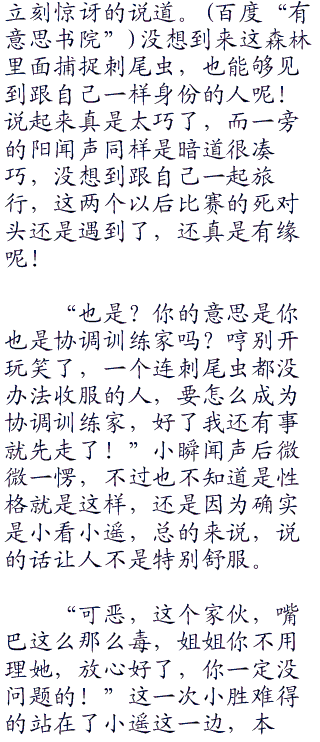 立刻惊讶的说道。(百度“有
意思书院”)没想到来这森林
里面捕捉刺尾虫，也能够见
到跟自己一样身份的人呢！
说起来真是太巧了，而一旁
的阳闻声同样是暗道很凑
巧，没想到跟自己一起旅
行，这两个以后比赛的死对
头还是遇到了，还真是有缘
呢！
“也是？你的意思是你
也是协调训练家吗？哼别开
玩笑了，一个连刺尾虫都没
办法收服的人，要怎么成为
协调训练家，好了我还有事
就先走了！”小瞬闻声后微
微一愣，不过也不知道是性
格就是这样，还是因为确实
是小看小遥，总的来说，说
的话让人不是特别舒服。
“可恶，这个家伙，嘴
巴这么那么毒，姐姐你不用
理她，放心好了，你一定没
问题的！”这一次小胜难得
的站在了小遥这一边，本